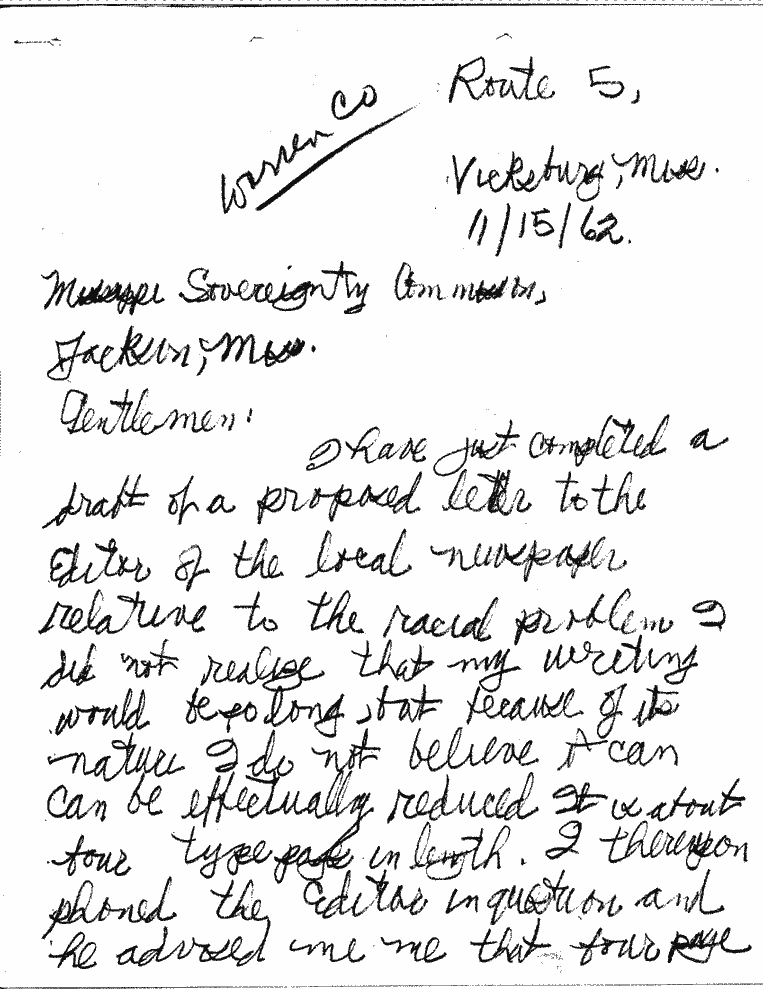 Route 5,
Warren Co
Vicksburg, Miss.
11/15/62.
Mississippi Sovereignty Commission,
Jackson, Miss.
Gentlemen:
I have just completed a
draft of a proposed letter to the
Editor of the local newspaper
relative to the racial problem I
did not realize that my writing
would be so long, but because of its
nature I do not believe it can
can be effectually reduced It is about
four type page in length. I thereupon
phoned the Editor in question and
he advised me me that four page